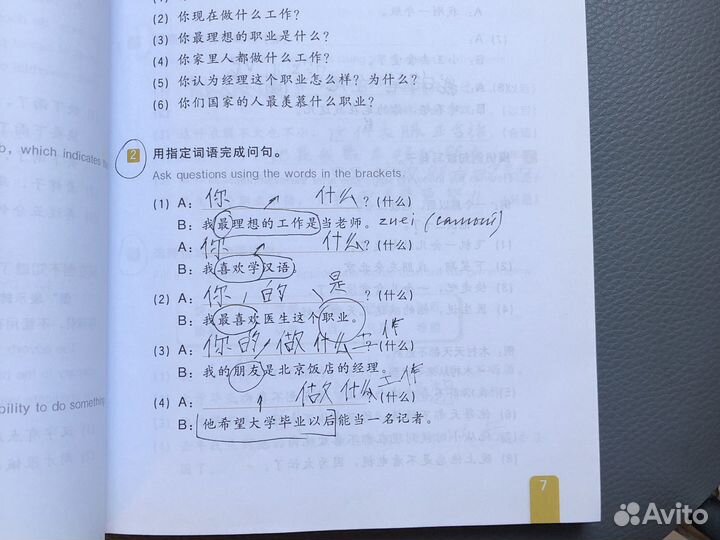 (2) 你现在做什么工作?
(3) 你最理想的职业是什么?
(4) 你家里人都做什么工作?
(5) 你认为经理这个职业怎么样? 为什么?
(6) 你们国家的人最羡慕什么职业?
b, which indicates
2 用指定词语完成问句。
Ask questions using the words in the brackets.
(1) A: 你 什么 ? (什么)
B: 我最理想的工作是当老师。 zuei
A: 你 什么 ? (什么)
B: 我喜欢学汉语。
(2) A: 你 的 是 ? (什么)
B: 我最喜欢医生这个职业。
(3) A: 你的 做 什么工作 ? (什么)
B: 我的朋友是北京饭店的经理。
(4) A: 做 什么工作 ? (什么)
bility to do something
B: 他希望大学毕业以后能当一名记者。
7
Avito